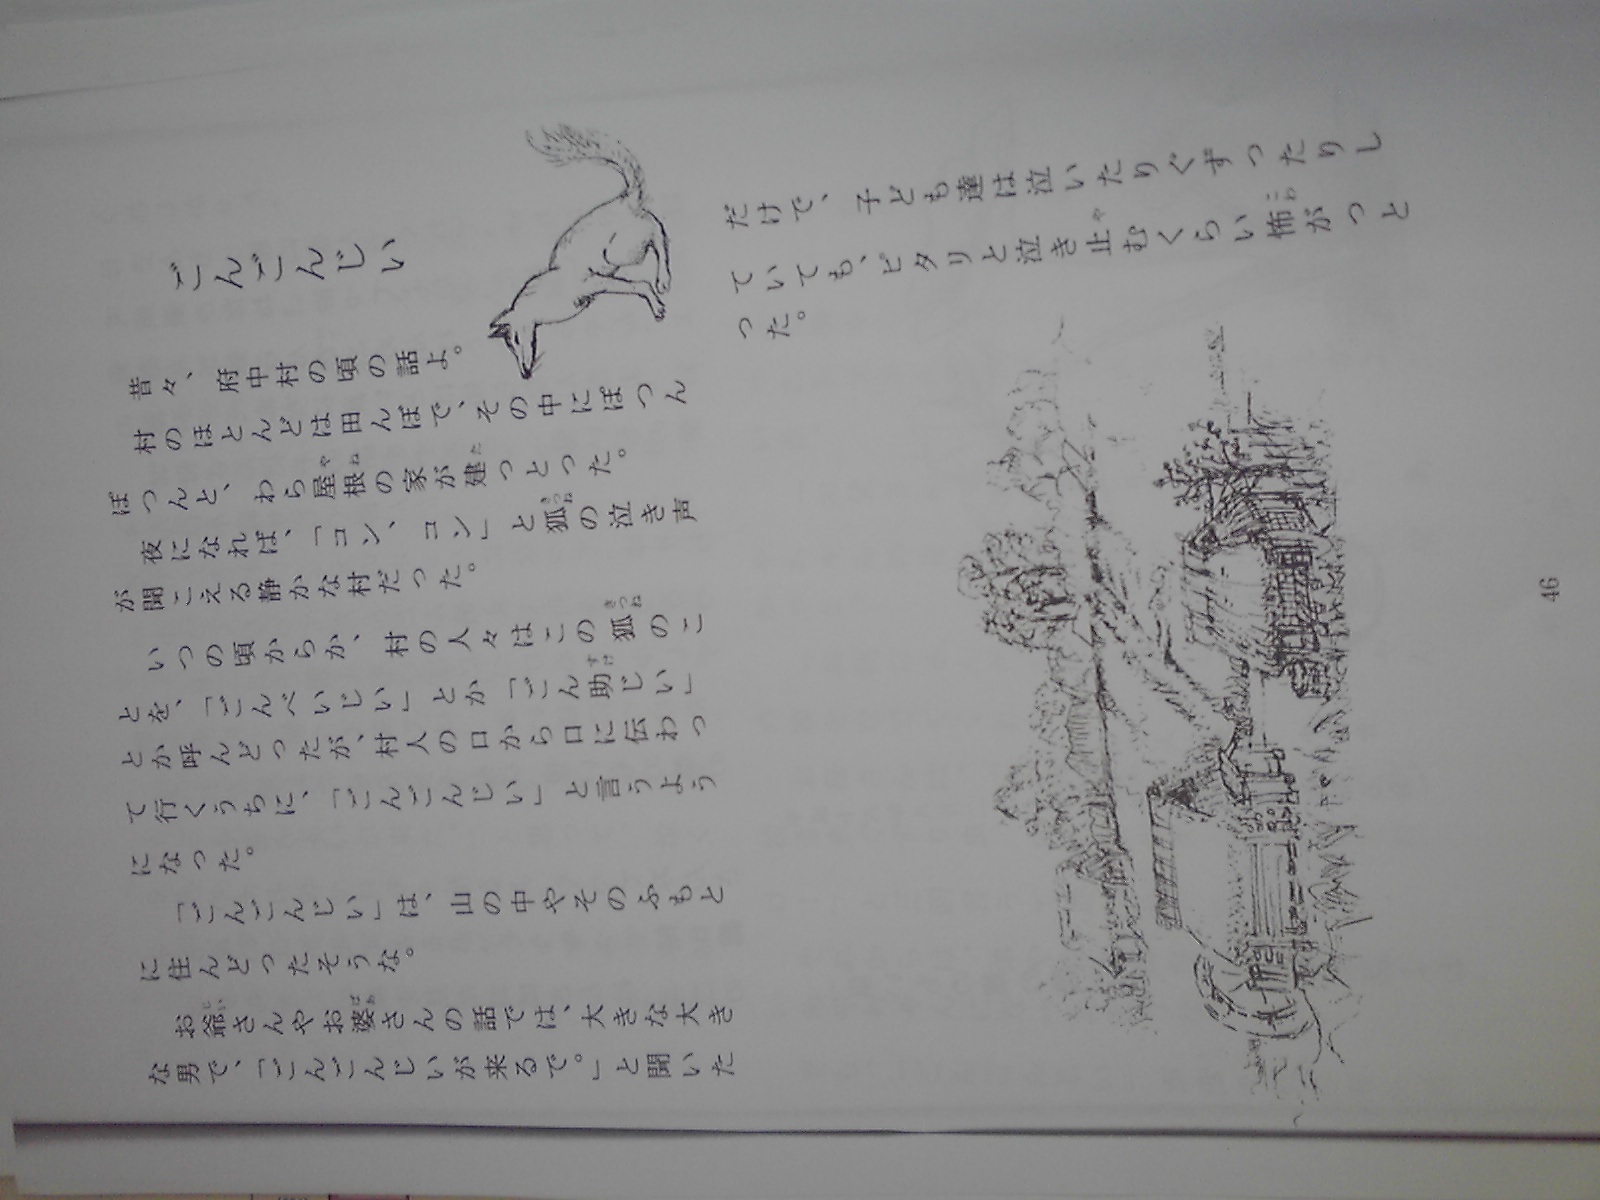 ごんごんじい
昔々、府中村の頃の話よ。
村のほとんどは田んぼで、その中にぽつん
ぽつんと、わら屋根の家が建っとった。
夜になれば、「コン、コン」と狐の泣き声
が聞こえる静かな村だった。
いつの頃からか、村の人々はこの狐のこ
とを、「ごんべいじい」とか「ごん助じい」
とか呼んどったが、村人の口から口に伝わっ
て行くうちに、「ごんごんじい」と言うよう
になった。
「ごんごんじい」は、山の中やそのふもと
に住んどったそうな。
お爺さんやお婆さんの話では、大きな大き
な男で、「ごんごんじいが来るで。」と聞いた
だけで、子ども達は泣いたりぐずったりし
ていても、ピタリと泣き止むくらい怖がっと
った。
46